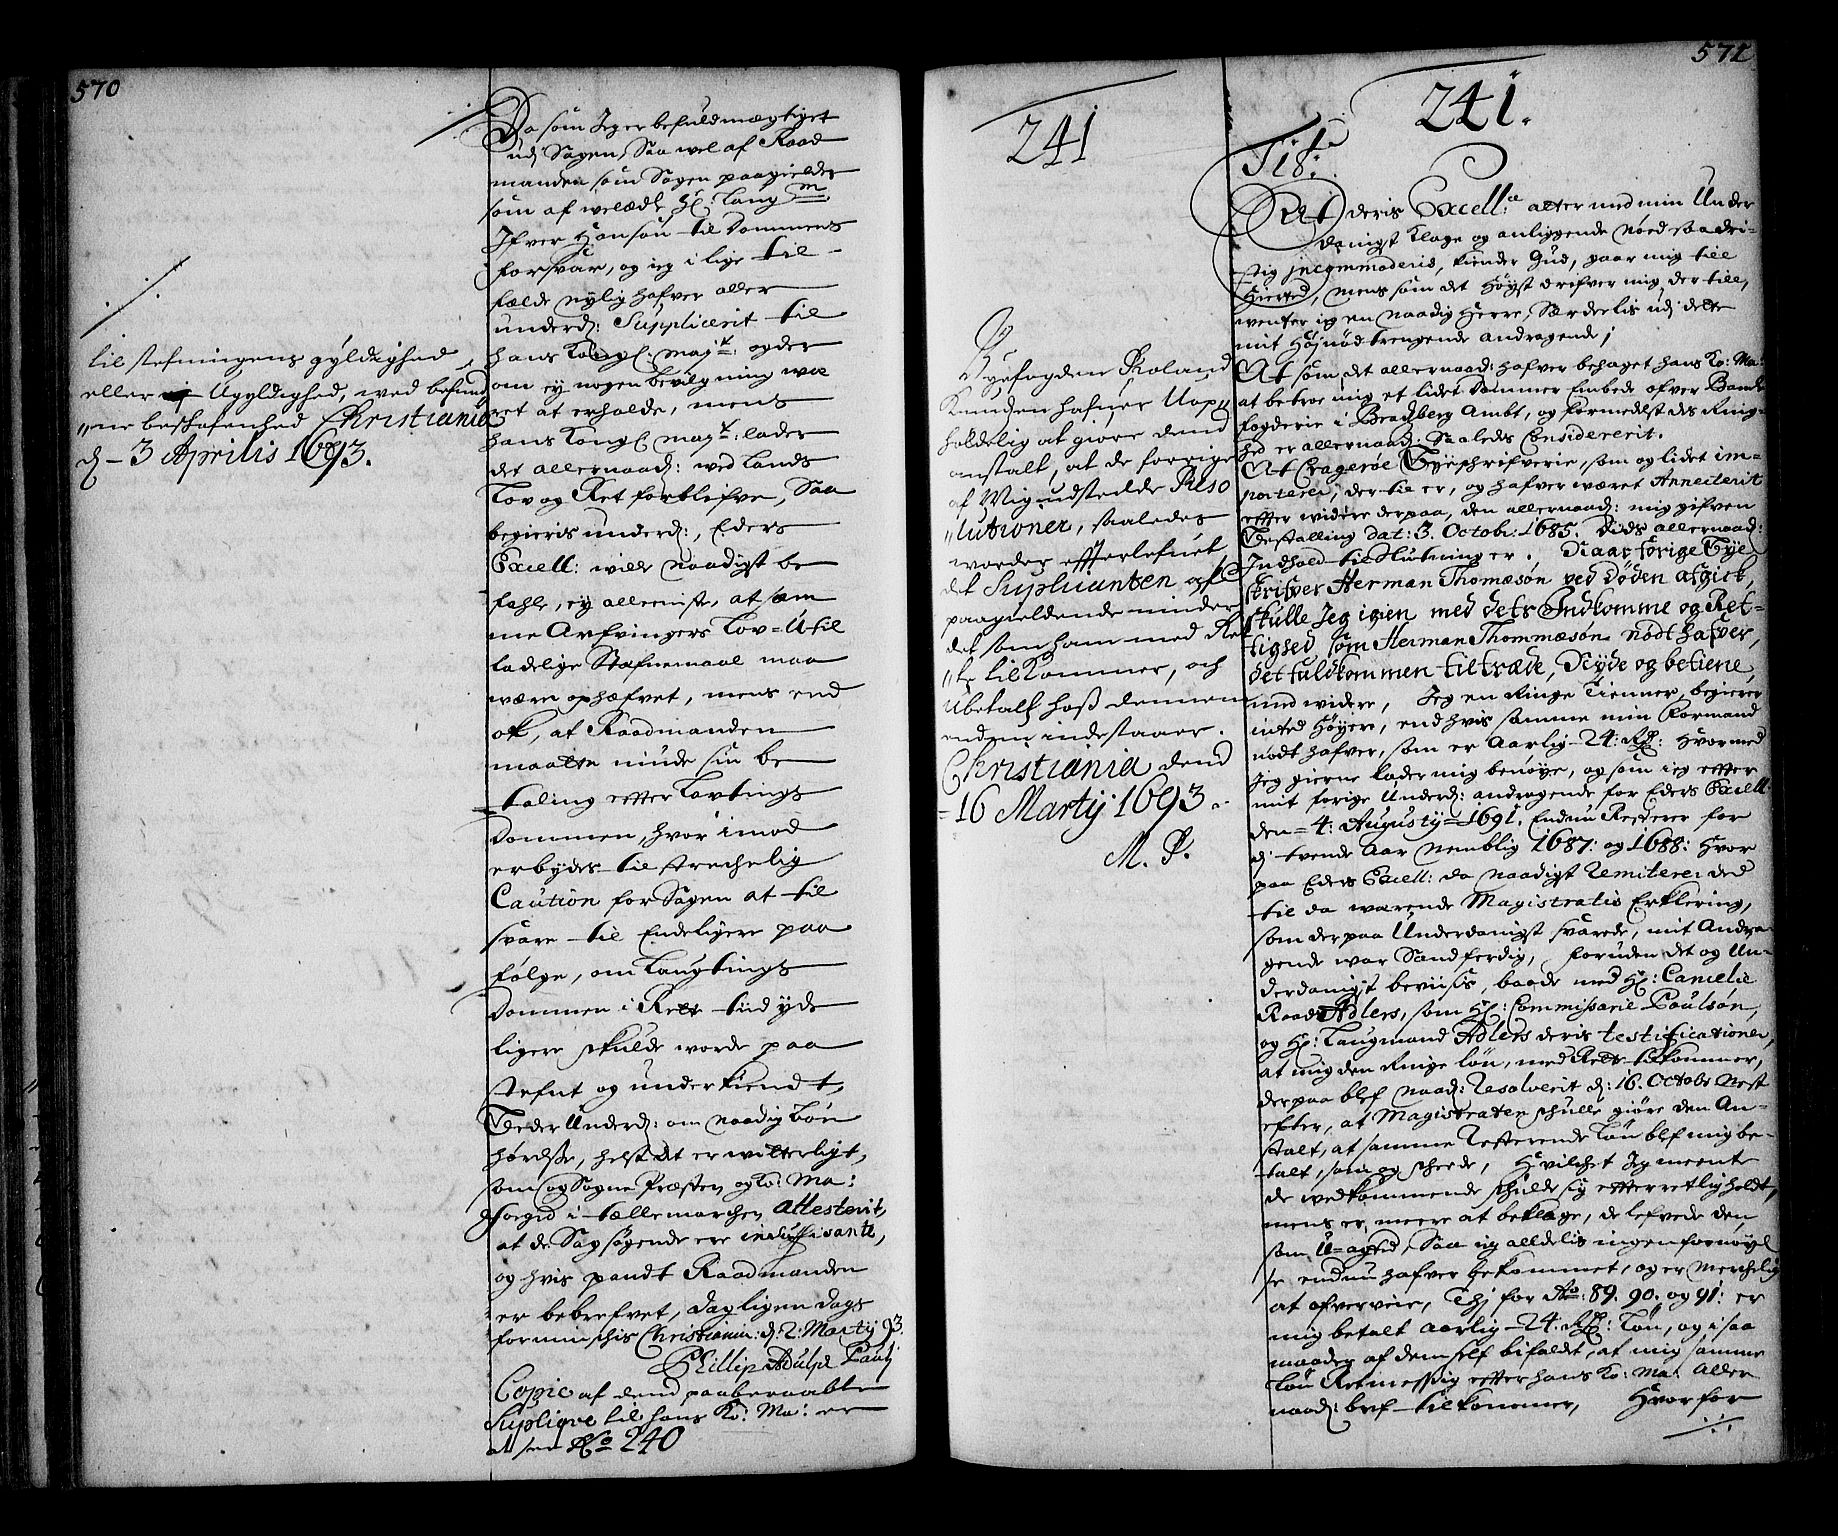 570
til stefningens gyldighed,
eller Ugyldighed, ved befund
"ne beskafenhed Christiania
d. 3 Aprilis 1693.
Da som Jeg er befuldmægtiget
udj Sagen, Saa vel af Raad
manden som Sagen paagielder
som af velædle Hr: Laugm
Ifver Hansøn til Dommens
forsvar, og jeg i lige til-
fælde nylig hafver aller
underd: Supplicerit til
hans Kongl. mayt: og der
om ey nogen bevilgning var
at erholde, mens
hans Kongl. mayt: lader
det allernaad: ved Lands
Lov og Ret forblifve, Saa
begieris underd:, Eders
Excell: ville Naadigst be
fahle, ey allerniste, at sam
me Arfvingers Lov=Util
ladelige Stefnemaal maa
være ophæfvet, mens end
ok, at Raadmanden
maatte niude sin be
taling effter Lavtings
Dommen, hvor imod
erbydes tilstrechelig
Caution for Sagen at til
svare til Endeligere paa
følge, om Laugtings
Dommen i Rette tid yde
ligere skulde vorde paa
stefnt og underkiendt,
Beder Underd: om naadig bøn
hørelse, helst det er vitterligt,
som og Sogne Præsten og Ko: Ma:
Foegid i Tellemarchen attesterit,
at de Sagsøgende ere insuffisante,
og hvis pandt Raadmanden
er bebrefvet, dagligen dags
forminschis Christiania: d: 2: Marty 93.
Phillip Adulph Pauly
Copie af dend paaberaabte
Suplique til hans Ko: Ma: er
at see No 240
571
241
Byefogden Roland
Knudsen hafver Uop"
holdelig at giøre dend
anstalt, at de forrige
af Mig udstedde Reso
"lutioner, saaledes
vorder effterlefvet
det Suplicanten
paagieldende niuder
det som ham med Ret
"te tilkommer, och
Ubetalt hoss dennem
endnu indestaaer.
Christiania dend
16 Marty 1693.
M. P.
241.
Tit:
At deris Excell:ce atter med min Under
danigst Klage og anliggende nød saa dri-
stig incommoderis, kiender Gud, gaar mig till
Hierted, mens som det Høyst drifver mig der till,
venter jeg en naadig Herre, Særdeelis udj dette
mit Høynødtrengende andragende;
At som det allernaad: hafver behaget hans Ko: Ma:
at betroe mig et lidet Dommer Embede ofver Bamble
fogderie i Bradsberg Ambt, og formedelst des Ring-
hed er allernaad: Saaledes Considererit.
At Cragerøe Byeschrifverie, som og lidet im-
porterer, der til er, og hafver været Annecterit
effter videre derpaa, den allernaad: mig gifven
Bestalling dat: 3. Octobr: 1685. Dids allernaad:
Indhold til Slutning er. Naar forige Bye
skrifver Herman Thomæsøn ved døden afgick,
skulle Jeg igien med dets Indkomme og Ret-
tighed, som Herman Thommæsøn nødt hafver,
det fuldkommen tiltræde, Nyde og betiene,
med videre, Jeg en Ringe Tienner, begierer
inted Høyere, end hvis samme min Formand
nødt hafver, som er Aarlig 24: Rdr: Hvormed
Jeg gierne lader mig benøye, og som jeg effter
mit forige Underd: andragende for Eders Excell:
den 4: Augusty 1691. Endnu Resterer for
d: tvende Aar Nemblig 1687: og 1688: Hvor
paa Eders Excell: da naadigst remiterer ded
til da værende Magistratis Erklering,
som derpaa Underdanigst svarede, mit Andra
gende var Sandferdig, foruden det og Un-
derdanigst beviisis, baade med Hr: Cancelie
Raad Adlers, som Hr: Commissarie Poulsøn,
og Hr: Laugmand Adlers deris testificationer,
at mig den Ringe løn, med Rette tilkommer,
derpaa blef Naad: Resolverit d: 16. Octobr Nest
effter, at Magistraten schulle giøre den An-
stalt, at samme Resterende løn blef mig be-
talt, som og scheede, Hvilchet Jeg meente
de vedkommende schulde sig effterretlig holdt,
mens er meere at beklage, de lefvede den
som U=agted, Saa jeg alldelis ingen fornøyel
se endnu hafver bekommet, og er merchelig
at ofverveie, Thj for Ao: 89. 90. og 91: er
mig betalt aarlig 24. Rdr: Løn, og i saa
maader af dem self bifaldt, at mig samme
løn Retmessig effter hans Ko: Ma: Aller
naad: bref tilkommer, Hvorfor